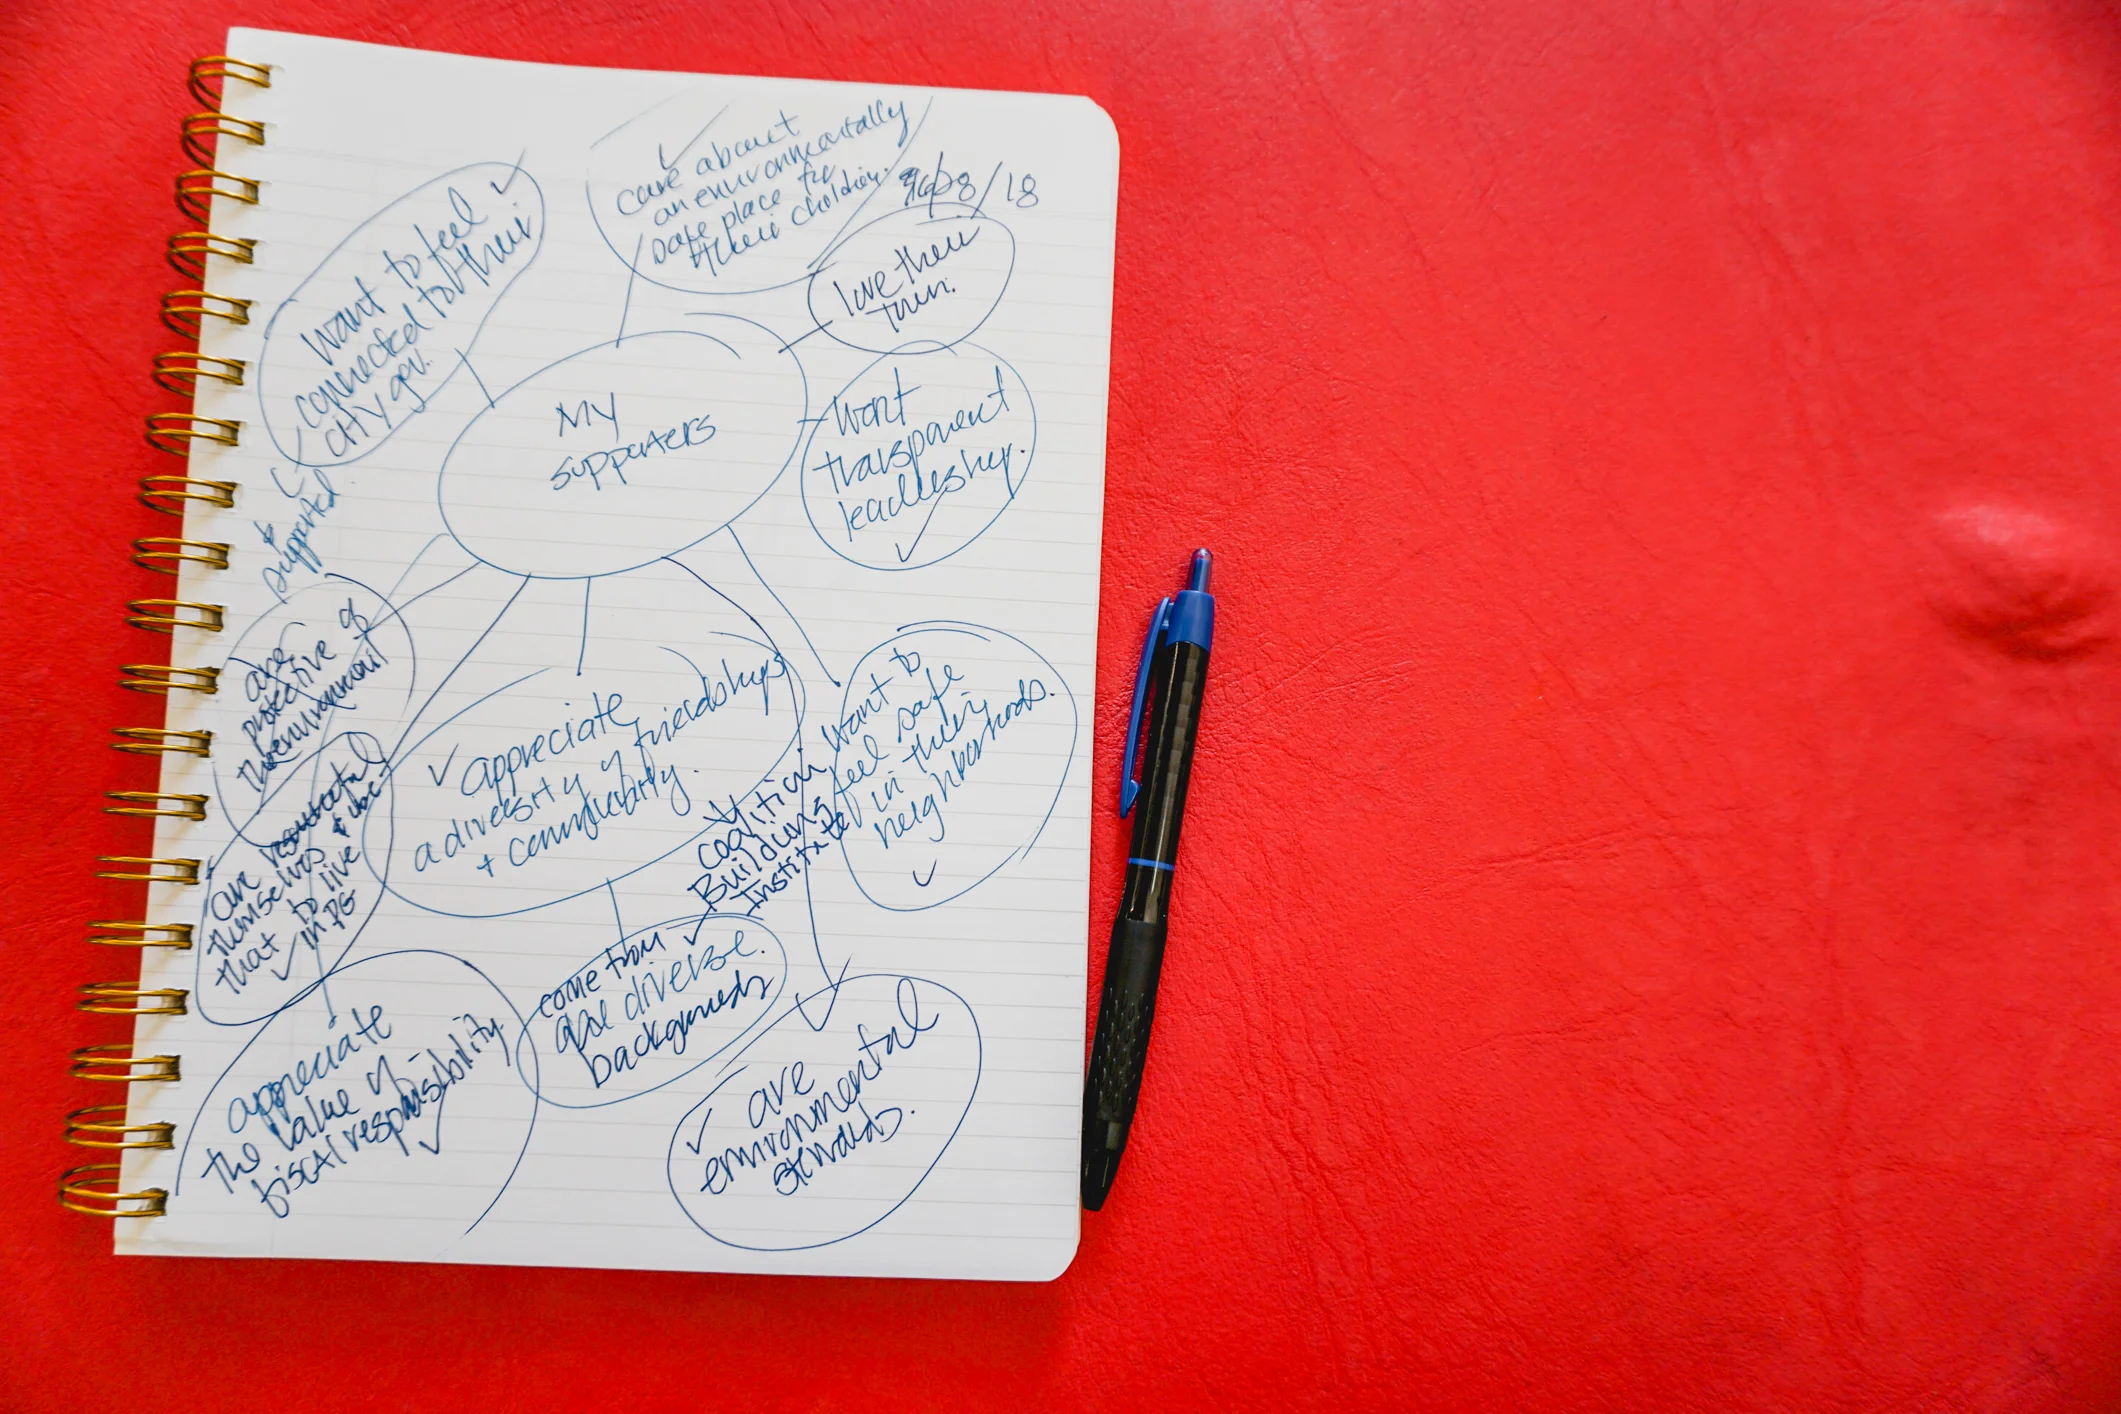 care about
an environmentally
safe place for
their children.
/18
want to feel
connected to their
city gov.
love their
town.
My
supporters
want
transparent
leadership.
supported
are
protective of
the environment
appreciate
a diversity of friendships
+ community.
want to
feel safe
in their
neighborhoods.
Coalition
Building
Institute
are
themselves
that to live
in PG
come from
diverse
backgrounds
appreciate
the value of
fiscal responsibility
are
environmental
stewards.